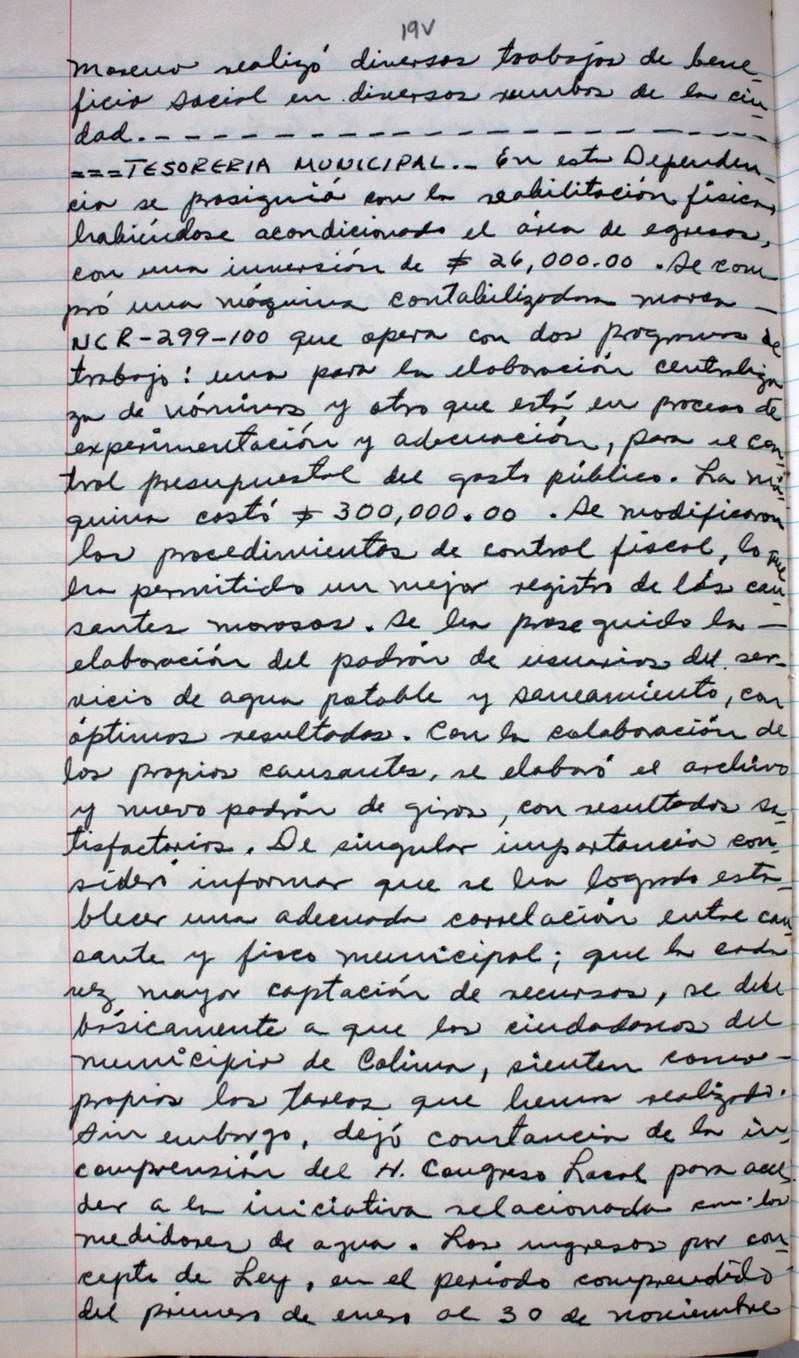 19V
Moreno realizó diversos trabajos de bene-
ficio social en diversos rumbos de la ciu-
dad.- - - - - - - - - - - - - - - - - - - -
===TESORERIA MUNICIPAL.- En esta Dependen-
cia se prosiguió con la reabilitación física,
habiéndose acondicionado el área de egresos,
con una inversión de $ 26,000.00 . Se com-
pró una máquina contabilizadora marca -
NCR-299-100 que opera con dos programas de
trabajo: una para la elaboración centraliza
za de nóminas y otro que está en proceso de
experimentación y adecuación, para el con-
trol presupuestal del gasto público. La má-
quina costó $ 300,000.00 . Se modificaron
los procedimientos de control fiscal, lo que
ha permitido un mejor registro de los cau-
santes morosos. Se ha proseguido la -
elaboración del padrón de usuarios del ser-
vicio de agua potable y saneamiento, con
óptimos resultados. Con la colaboración de
los propios causantes, se elaboró el archivo
y nuevo padrón de giros, con resultados sa-
tisfactorios. De singular importancia con-
sideró informar que se ha logrado esta-
blecer una adecuada correlación entre cau-
sante y fisco municipal; que la cada
vez mayor captación de recursos, se debe
básicamente a que los ciudadanos del
municipio de Colima, sienten como -
propios las tareas que hemos realizado.
Sin embargo, dejó constancia de la in-
comprensión del H. Congreso Local para acce-
der a la iniciativa relacionada con los
medidores de agua. Los ingresos por con-
cepto de Ley, en el período comprendido
del primero de enero al 30 de noviembre